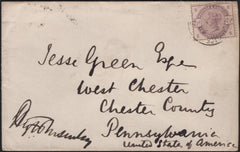 Jesse Green Esqre
West Chester
Chester County
Pennsylvania
United State of America